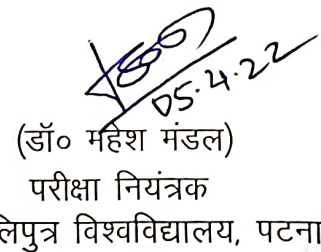 05.4.22
(डॉ० महेश मंडल)
परीक्षा नियंत्रक
लिपुत्र विश्वविद्यालय, पटना